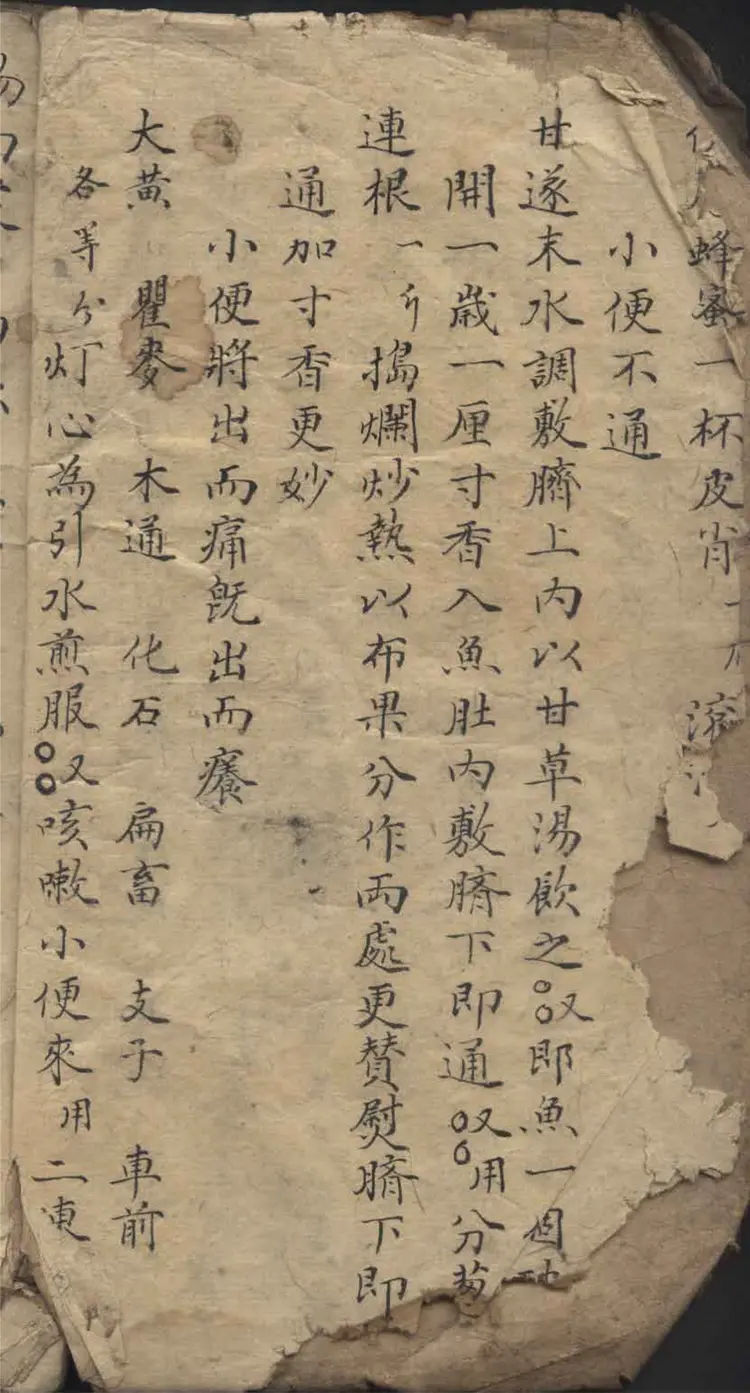 蜂蜜一杯皮肖一
小便不通
甘遂末水調敷臍上內以甘草湯飲之又即魚一個
開一歲一厘寸香入魚肚內敷臍下即通又用分葱
連根一斤搗爛炒熱以布果分作両處更賛熨臍下即
通加寸香更妙
小便將出而痛既出而癢
大黃 瞿麥 木通 化石 扁畜 支子 車前
各等分灯心為引水煎服又咳嗽小便來用二凍